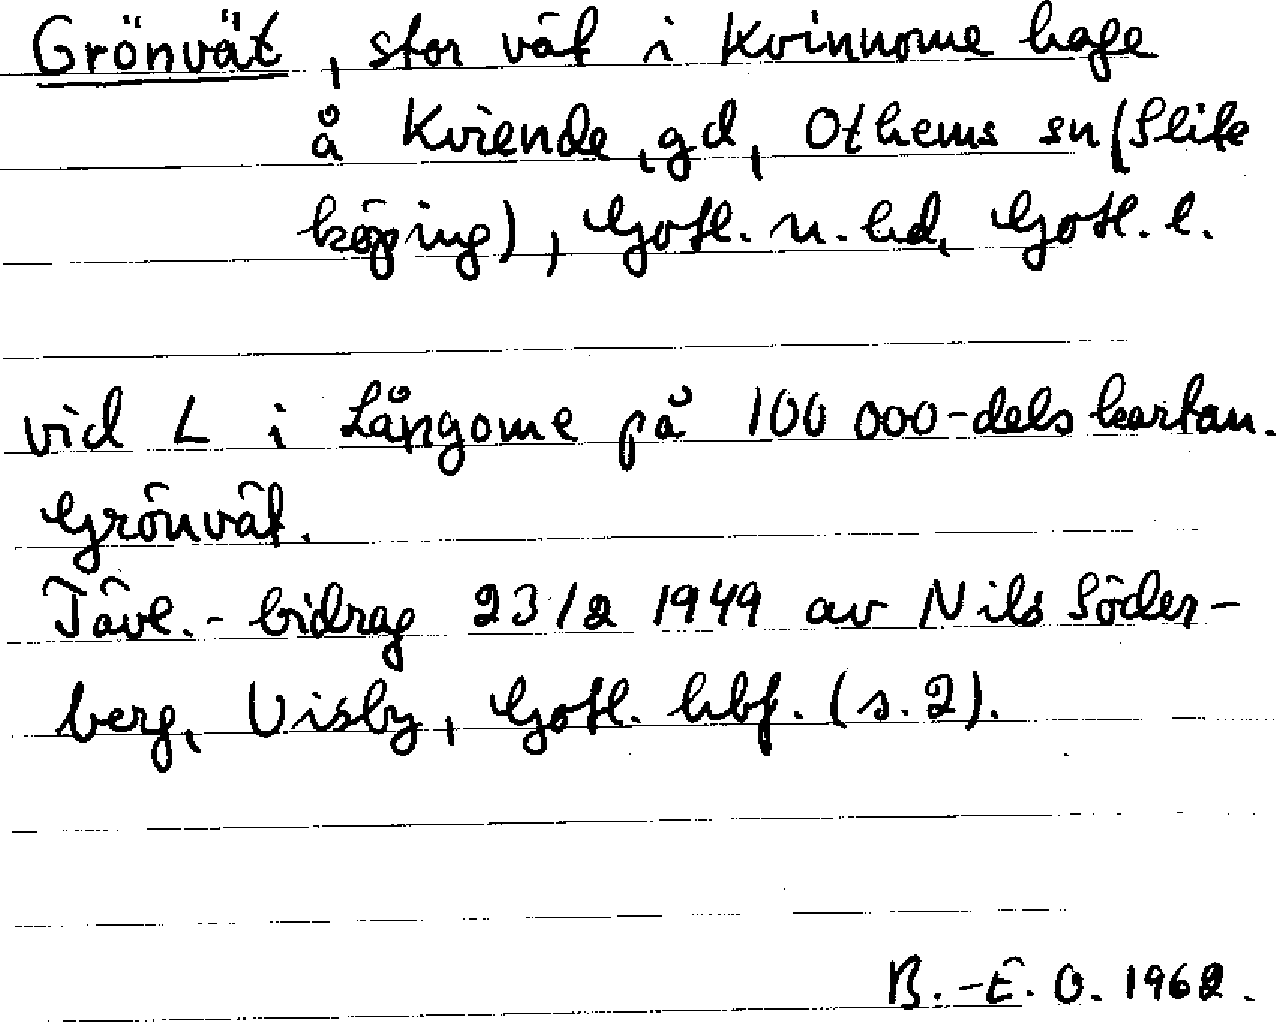 Grönvät, stor vät i Kvinnome hage
å Kviende, gd, Othems sn (Slite
köping), Gotl. n. hd, Gotl. l.
vid L i Långome på 100 000-dels kartan.
Grönvät.
Tävl.- bidrag 23/2 1949 av Nils Söder-
berg, Visby, Gotl. hbf. (s. 2).
B.-E. O. 1962.